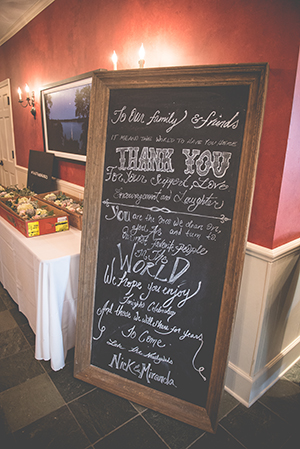 To Our family & friends
IT MEANS THE WORLD TO
THANK YOU
For Your Support, Love
Encouragement and Laughter
You are the Ones We
and turn to
Favorite People
IN THE
WORLD
We hope you enjoy
Tonight's Celebration
And those We Will Share for years
To Come
Love, the Newlyweds
Nick & Miranda